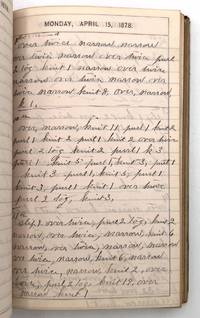 MONDAY, APRIL 15, 1878.
over twice, narrow, narrow
over twice, narrow over twice, purl
2 tog, knit 1, narrow, over twice
narrow, over twice, narrow, over
twice, narrow knit 8, over, narrow,
k 1,
over, narrow, knit 11, purl 1 knit 2
purl 1 knit 2, purl 1 knit 2 over twice
purl 2 tog knit 2 purl 1 k 3
purl 1 knit 5 purl 1, knit 3, purl 1
knit 3 purl 1, knit 5, purl 1
knit 3, purl 1 knit 1 over twice
purl 2 tog, knit 3,
slip 1 over twice, purl 2 tog, knit 2
narrow, over twice, narrow, knit 6
narrow, over twice, narrow, narrow
over twice, narrow, narrow, over
twice, narrow, knit 6, narrow
over twice, narrow, knit 2, over
purl 2 tog, knit 19, over
narrow knit 1